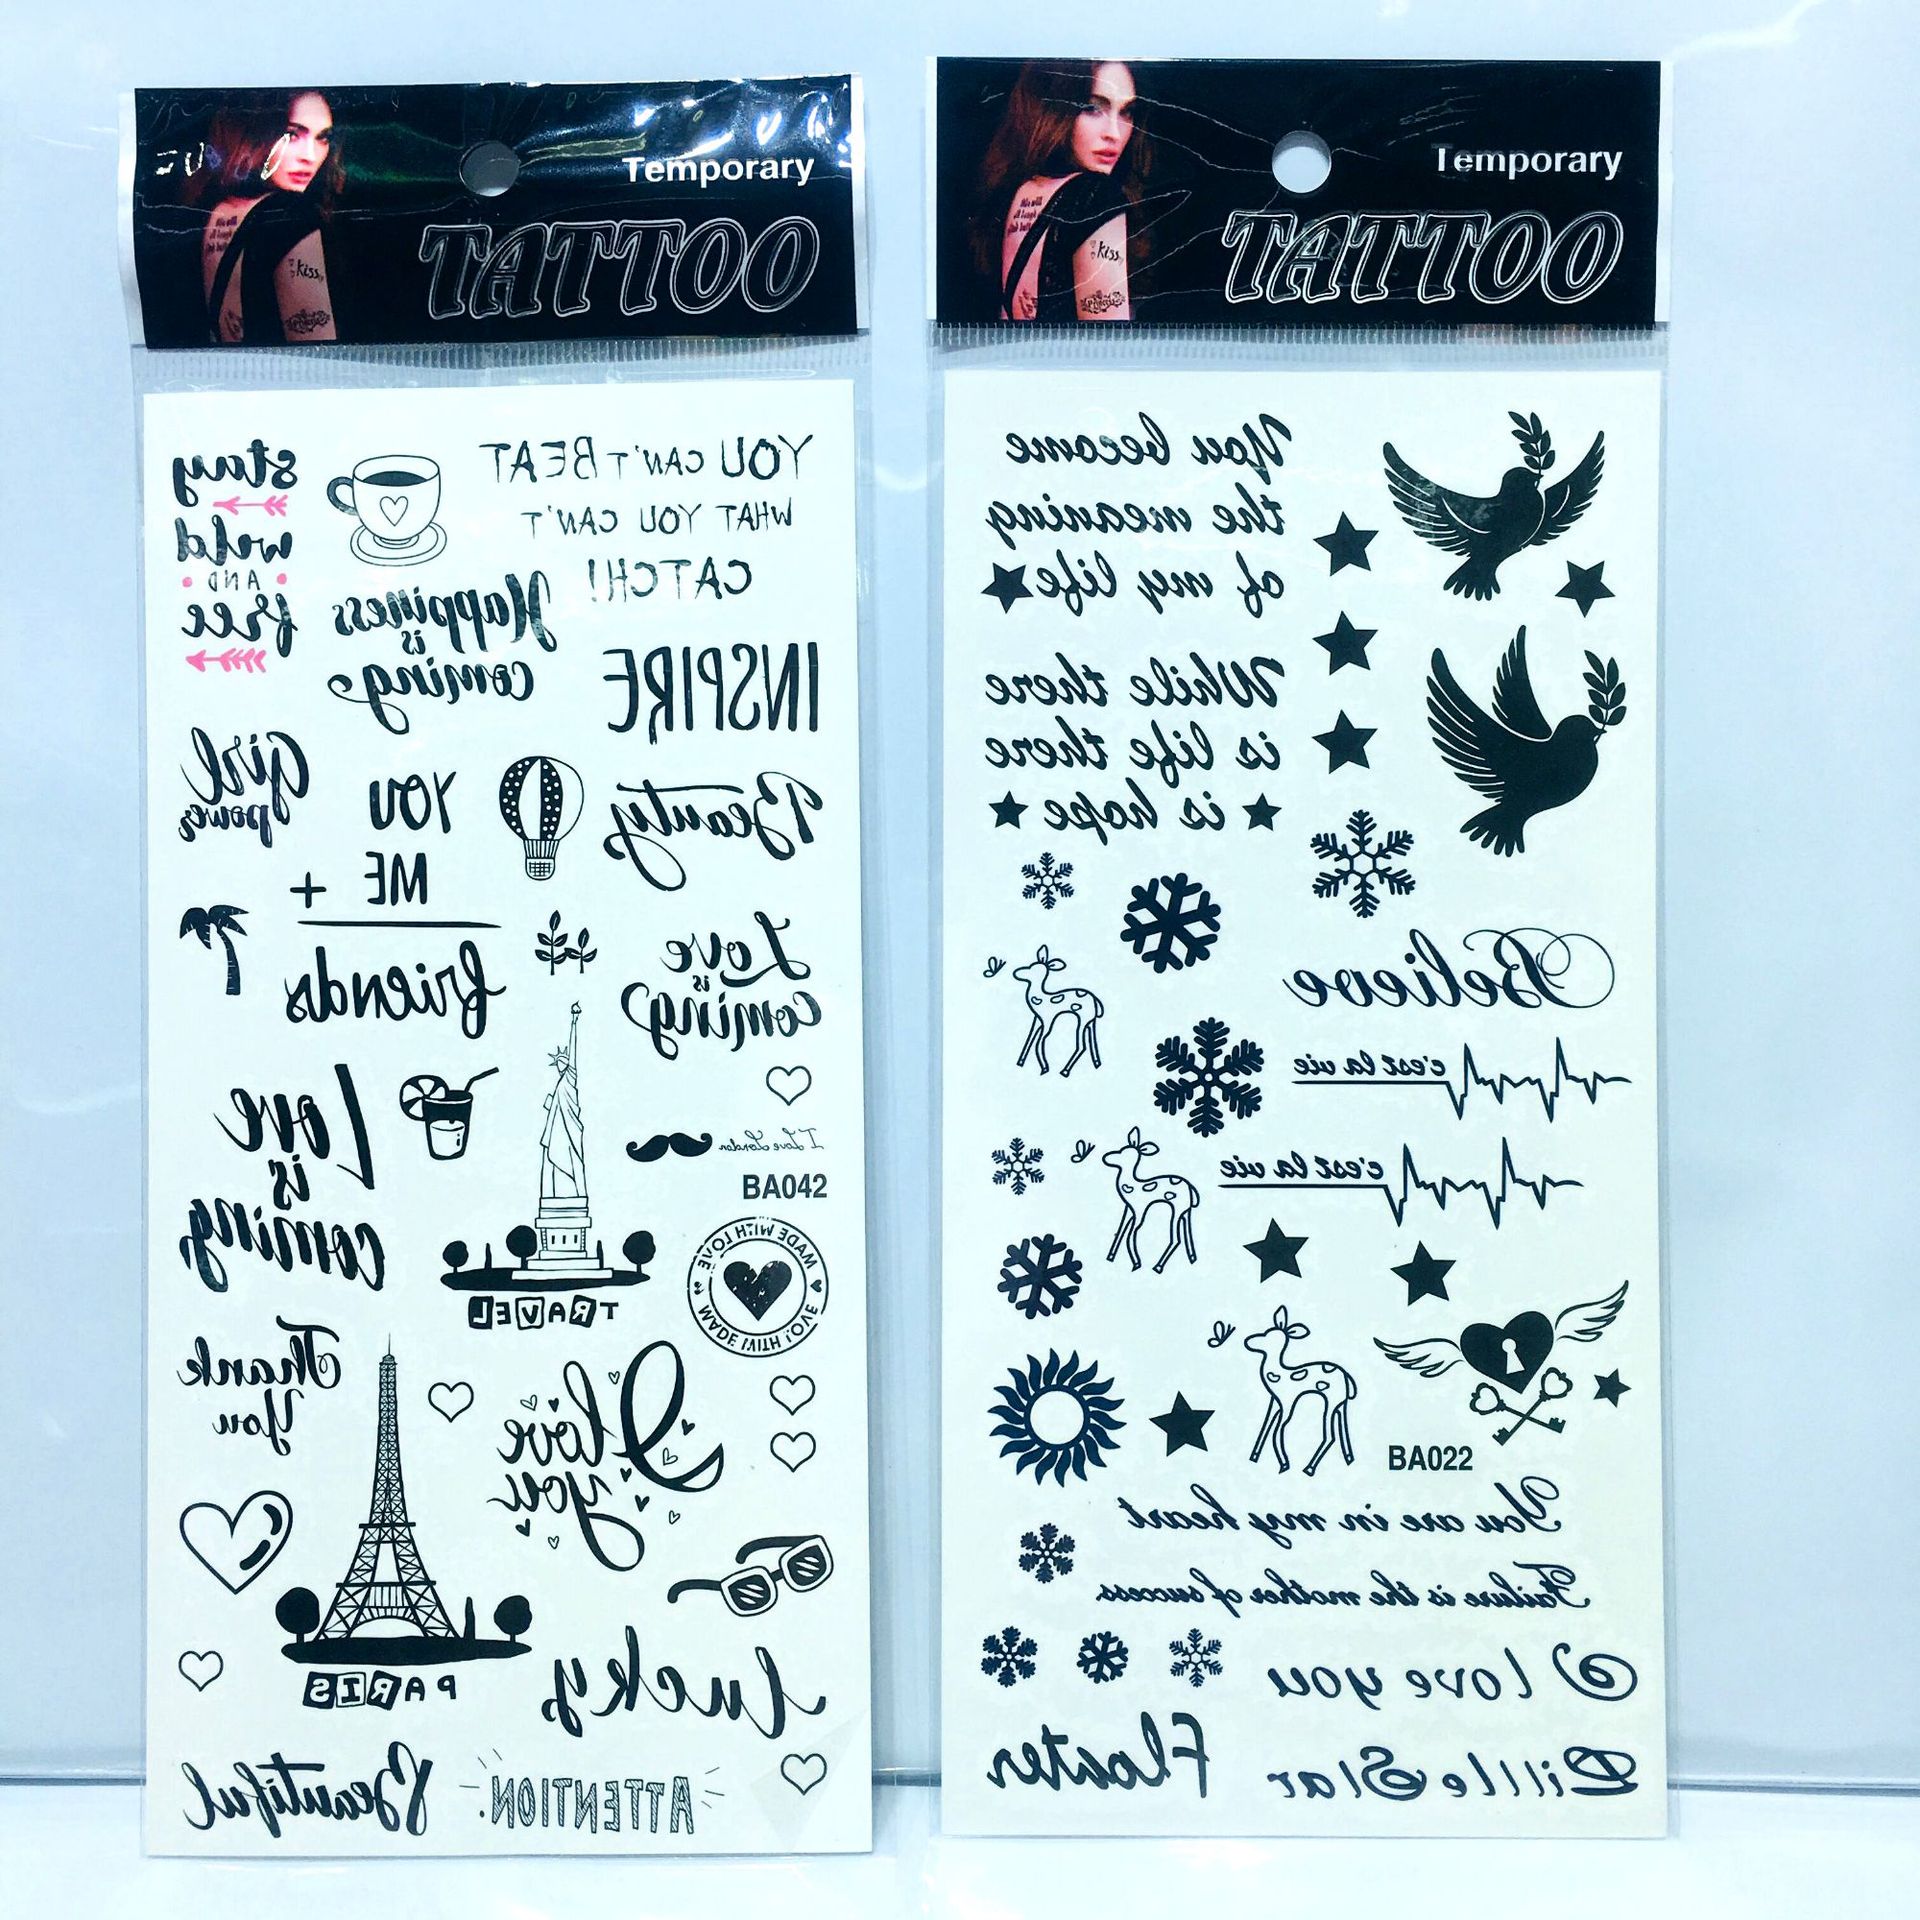 Temporary
TATTOO
kiss
stay
wild
AND
free
YOU CAN'T BEAT
WHAT YOU CAN'T
CATCH!
Happiness
is
coming
INSPIRE
Girl
power
YOU
ME
+
friends
Beauty
Love
is
coming
Love
is
coming
I Love London
BA042
MADE WITH LOVE
MADE WITH LOVE
TRAVEL
Thank
You
I love
you
PARIS
Lucky
Beautiful
ATTENTION.
Temporary
TATTOO
kiss
You become
the meaning
of my life
While there
is life there
is hope
Believe
c'est la vie
c'est la vie
BA022
You are in my heart
Failure is the mother of success
I love you
Floater
Little Star